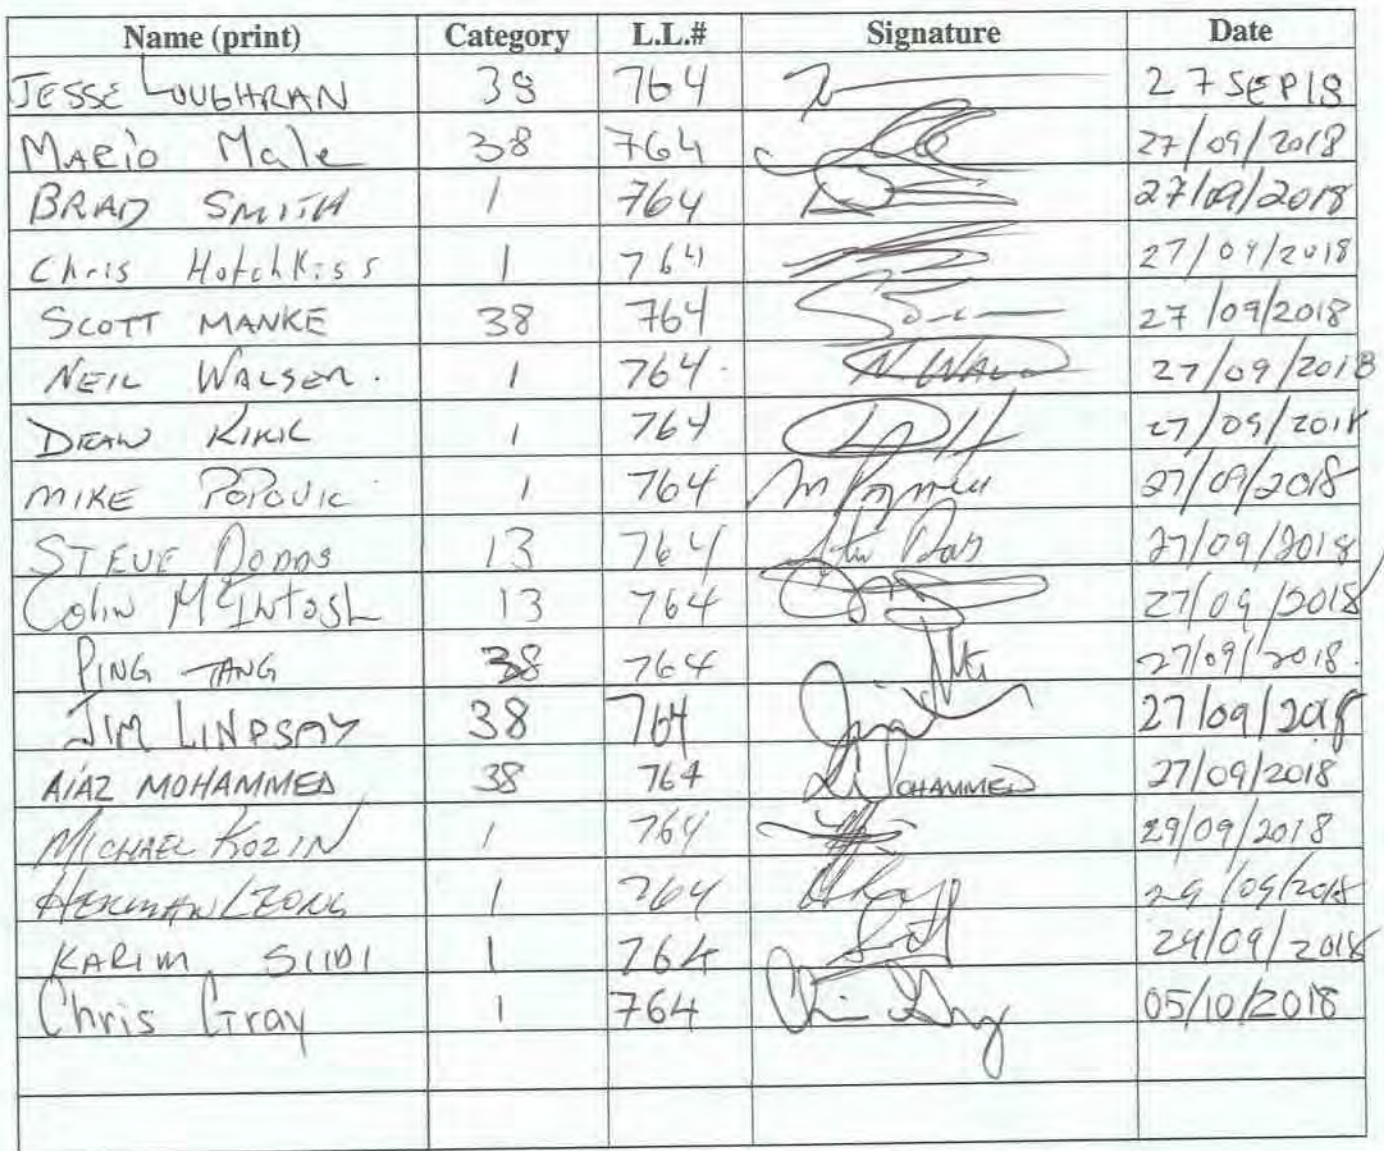 Name (print) Category L.L.# Signature Date
JESSE LOUGHRAN 38 764 27SEP18
MARIO Male 38 764 27/09/2018
BRAD SMITH 1 764 27/09/2018
Chris Hotchkiss 1 764 27/09/2018
SCOTT MANKE 38 764 27/09/2018
NEIL WALSER. 1 764. 27/09/2018
DEAN KIKIC 1 764 27/09/2018
MIKE POPOVIC 1 764 27/09/2018
STEVE DODDS 13 764 27/09/2018
Colin McIntosh 13 764 27/09/2018
PING TANG 38 764 27/09/2018.
JIM LINDSAY 38 764 27/09/2018
AIAZ MOHAMMED 38 764 MOHAMMED 27/09/2018
MICHAEL KOZIN 1 764 29/09/2018
HERMAN LEONG 1 764 29/09/2018
KARIM 1 764 29/09/2018
Chris Gray 1 764 Chris Gray 05/10/2018